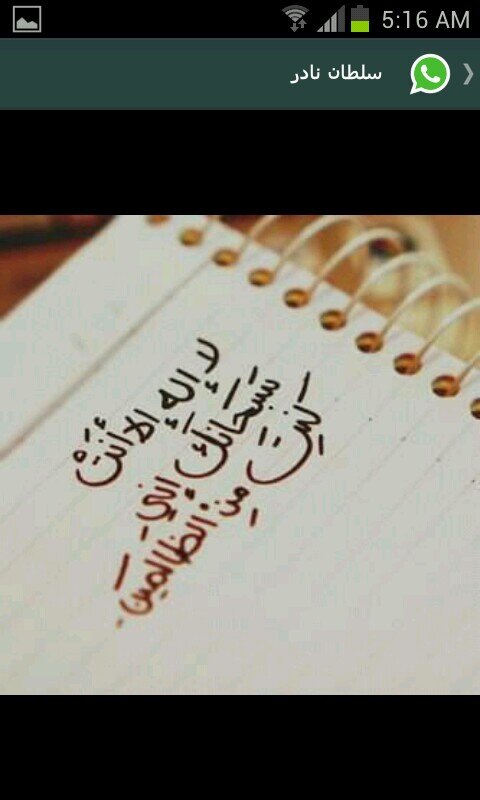 5:16 AM
سلطان نادر
لا إله إلا أنْتَ
سبحَانَك إنِّي
كنتَ مِن الظالمين